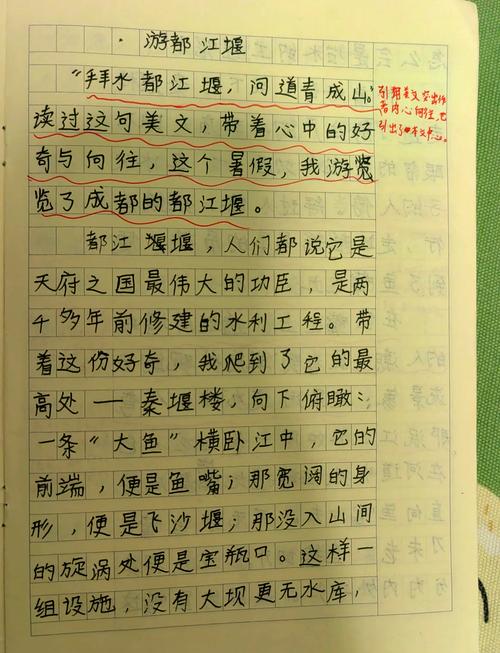 · 游都江堰
“拜水都江堰，问道青成山。”
读过这句美文，带着心中的好
奇与向往，这个暑假，我游览
览了成都的都江堰。
都江堰堰，人们都说它是
天府之国最伟大的功臣，是两
千多年前修建的水利工程。带
着这份好奇，我爬到了它的最
高处——秦堰楼，向下俯瞰：
一条“大鱼”横卧江中，它的
前端，便是鱼嘴；那宽阔的身
形，便是飞沙堰；那没入山间
的旋涡处便是宝瓶口。这样一
组设施，没有大坝更无水库，
引用美文突出作
者内心向往，也
引出了本文中心。